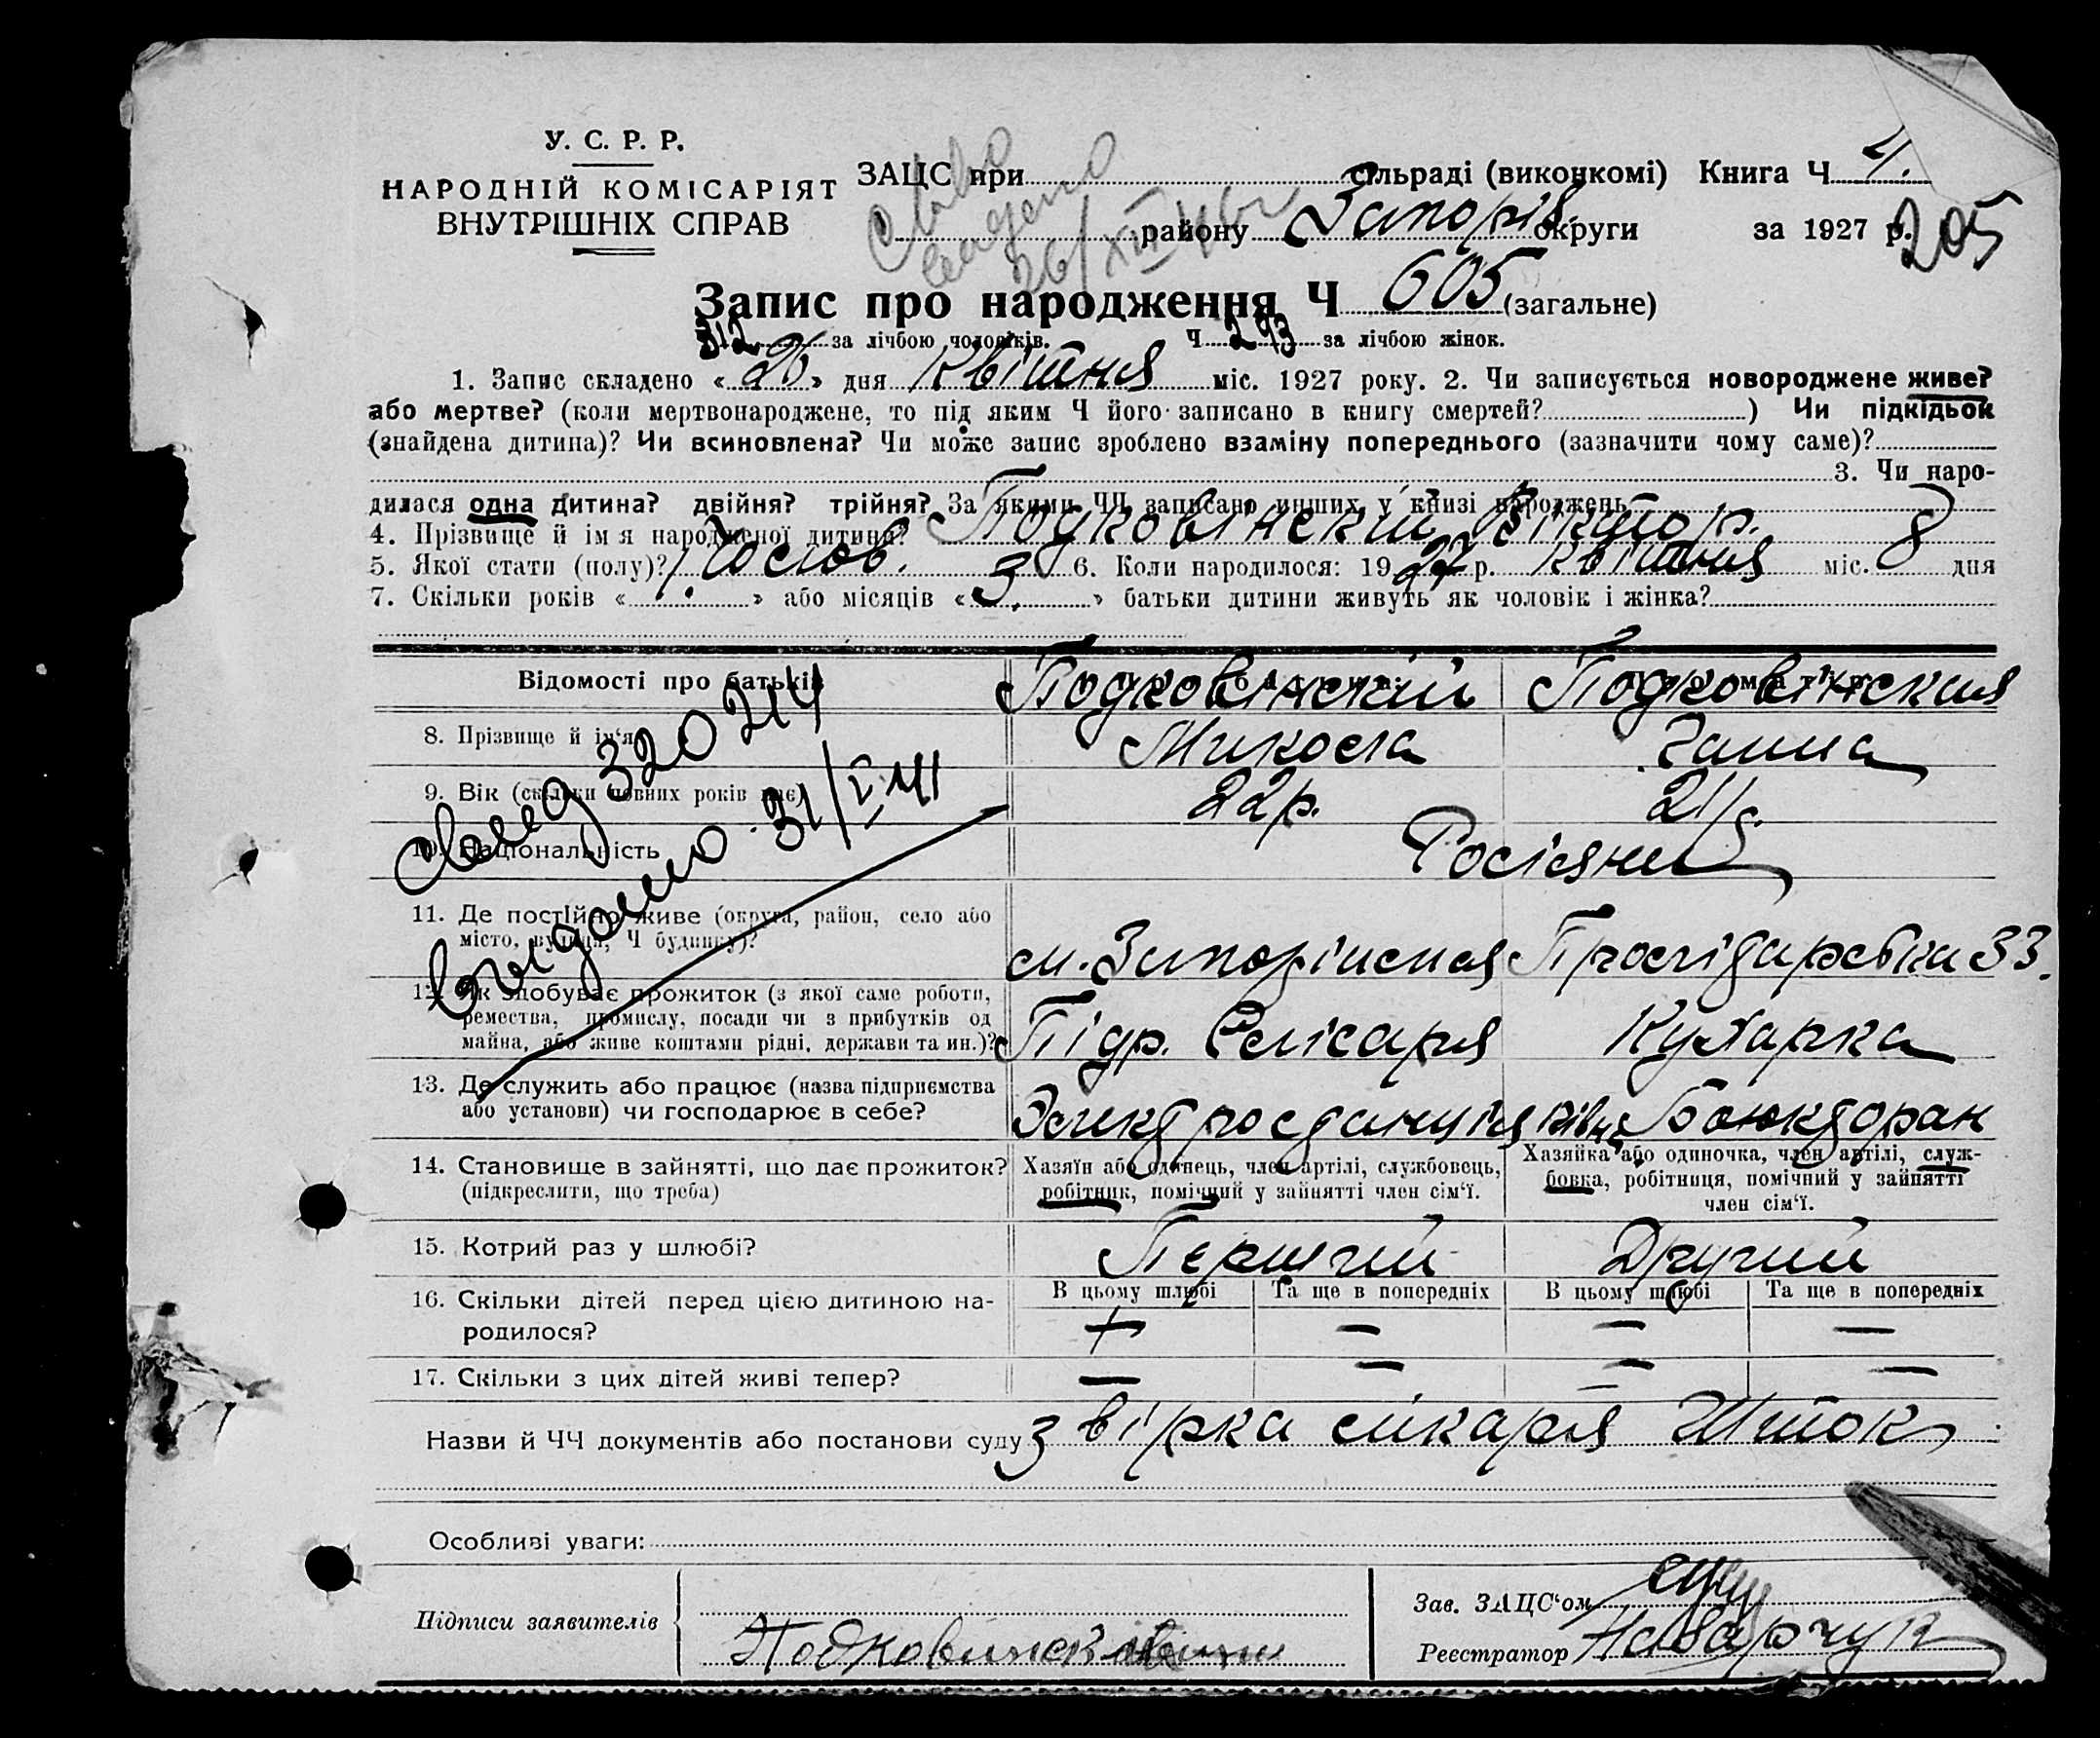 У. С. Р. Р.
НАРОДНІЙ КОМІСАРІЯТ
ВНУТРІШНІХ СПРАВ
ЗАЦС при сільраді (виконкомі) Книга Ч 4.
району Запоріж. округи за 1927 р.
205
26/XII 46
Запис про народження Ч 605 (загальне)
312 за лічбою чоловіків. Ч 293 за лічбою жінок.
1. Запис складено « 26 » дня Квітня міс. 1927 року. 2. Чи записується новороджене живе?
або мертве? (коли мертвонароджене, то під яким Ч його записано в книгу смертей? ) Чи підкідьок
(знайдена дитина)? Чи всиновлена? Чи може запис зроблено взаміну попереднього (зазначити чому саме)?
3. Чи наро-
дилася одна дитина? двійня? трійня? За якими ЧЧ записано инших у книзі народжень
4. Прізвище й імя народженої дитини? Подковінский Віктор.
5. Якої стати (полу)? Чолов. 6. Коли народилося: 19 27 р. Квітня міс. 8 дня
7. Скільки років « » або місяців « 3. » батьки дитини живуть як чоловік і жінка?
Відомості про батьків Подковінский Подковінская
8. Прізвище й ім'я Микола Ганна
9. Вік (скільки повних років має) 22р. 21р.
10. Національність Росіяни
11. Де постійно живе (округа, район, село або
місто, вулиця, Ч будинку)? 33.
12. Як здобуває прожиток (з якої саме роботи,
ремества, промислу, посади чи з прибутків од
майна, або живе коштами рідні, держави та ин.)? Підр. Слісаря Кухарка
13. Де служить або працює (назва підприємства
або установи) чи господарює в себе? Электростанція
14. Становище в зайнятті, що дає прожиток?
(підкреслити, що треба)
Хазяїн або одинець, член артілі, службовець,
робітник, помічний у зайнятті член сім'ї.
Хазяйка або одиночка, член артілі, служ-
бовка, робітниця, помічний у зайнятті
член сім'ї.
15. Котрий раз у шлюбі? Перший Другий
16. Скільки дітей перед цією дитиною на-
родилося?
В цьому шлюбі Та ще в попередніх В цьому шлюбі Та ще в попередніх
17. Скільки з цих дітей живі тепер?
Назви й ЧЧ документів або постанови суду Звірка лікаря Шток
Особливі уваги:
Підписи заявителів
Зав. ЗАЦС'ом
Реєстратор
320214
31/I 41